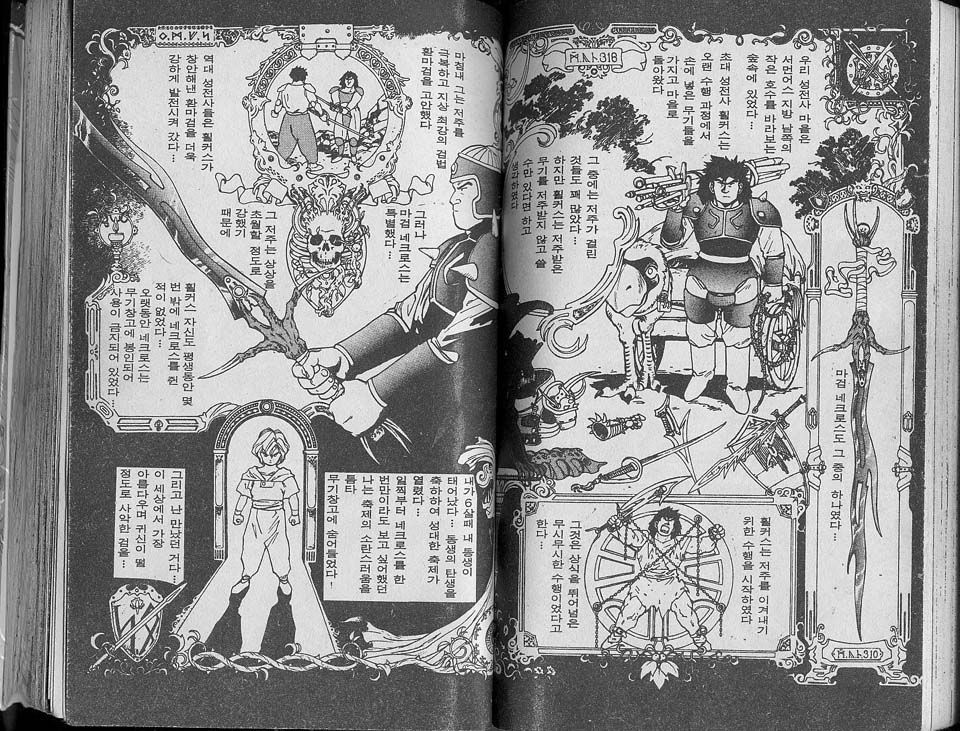 우리 성전사 마을은
서언어스 지방 남쪽의
작은 호수를 바라보는
숲속에 있었다…
초대 성전사 휠커스는
오랜 수행 과정에서
손에 넣은 무기들을
가지고 마을로
돌아왔다
그 중에는 저주가 걸린
것들도 꽤 많았다…
하지만 휠커스는 저주받은
무기를 저주받지 않고 쓸
수만 있다면 하고
생각하였다
마검 네크로스도 그 중의 하나였다…
휠커스는 저주를 이겨내기
위한 수행을 시작하였다
그것은 상식을 뛰어넘은
무시무시한 수행이었다고
한다…
마침내 그는 저주를
극복하고 지상 최강의 검법
환마검을 고안했다
역대 성전사들은 휠커스가
창안해낸 환마검을 더욱
강하게 발전시켜 갔다…
그러나
마검 네크로스는
특별했다…
그 저주는 상상을
초월할 정도로
강했기
때문에
휠커스 자신도 평생동안 몇
번 밖에 네크로스를 쥔
적이 없었다…
오랫동안 네크로스는
무기창고에 봉인되어
사용이 금지되어 있었다…
내가 6살때 내 동생이
태어났다… 동생의 탄생을
축하하여 성대한 축제가
열렸다…
일찍부터 네크로스를 한
번만이라도 보고 싶어했던
나는 축제의 소란스러움을
틈타
무기창고에 숨어들었다!
그리고 난 만났던 거다…
이 세상에서 가장
아름다우며 귀신이 떨
정도로 사악한 검을…